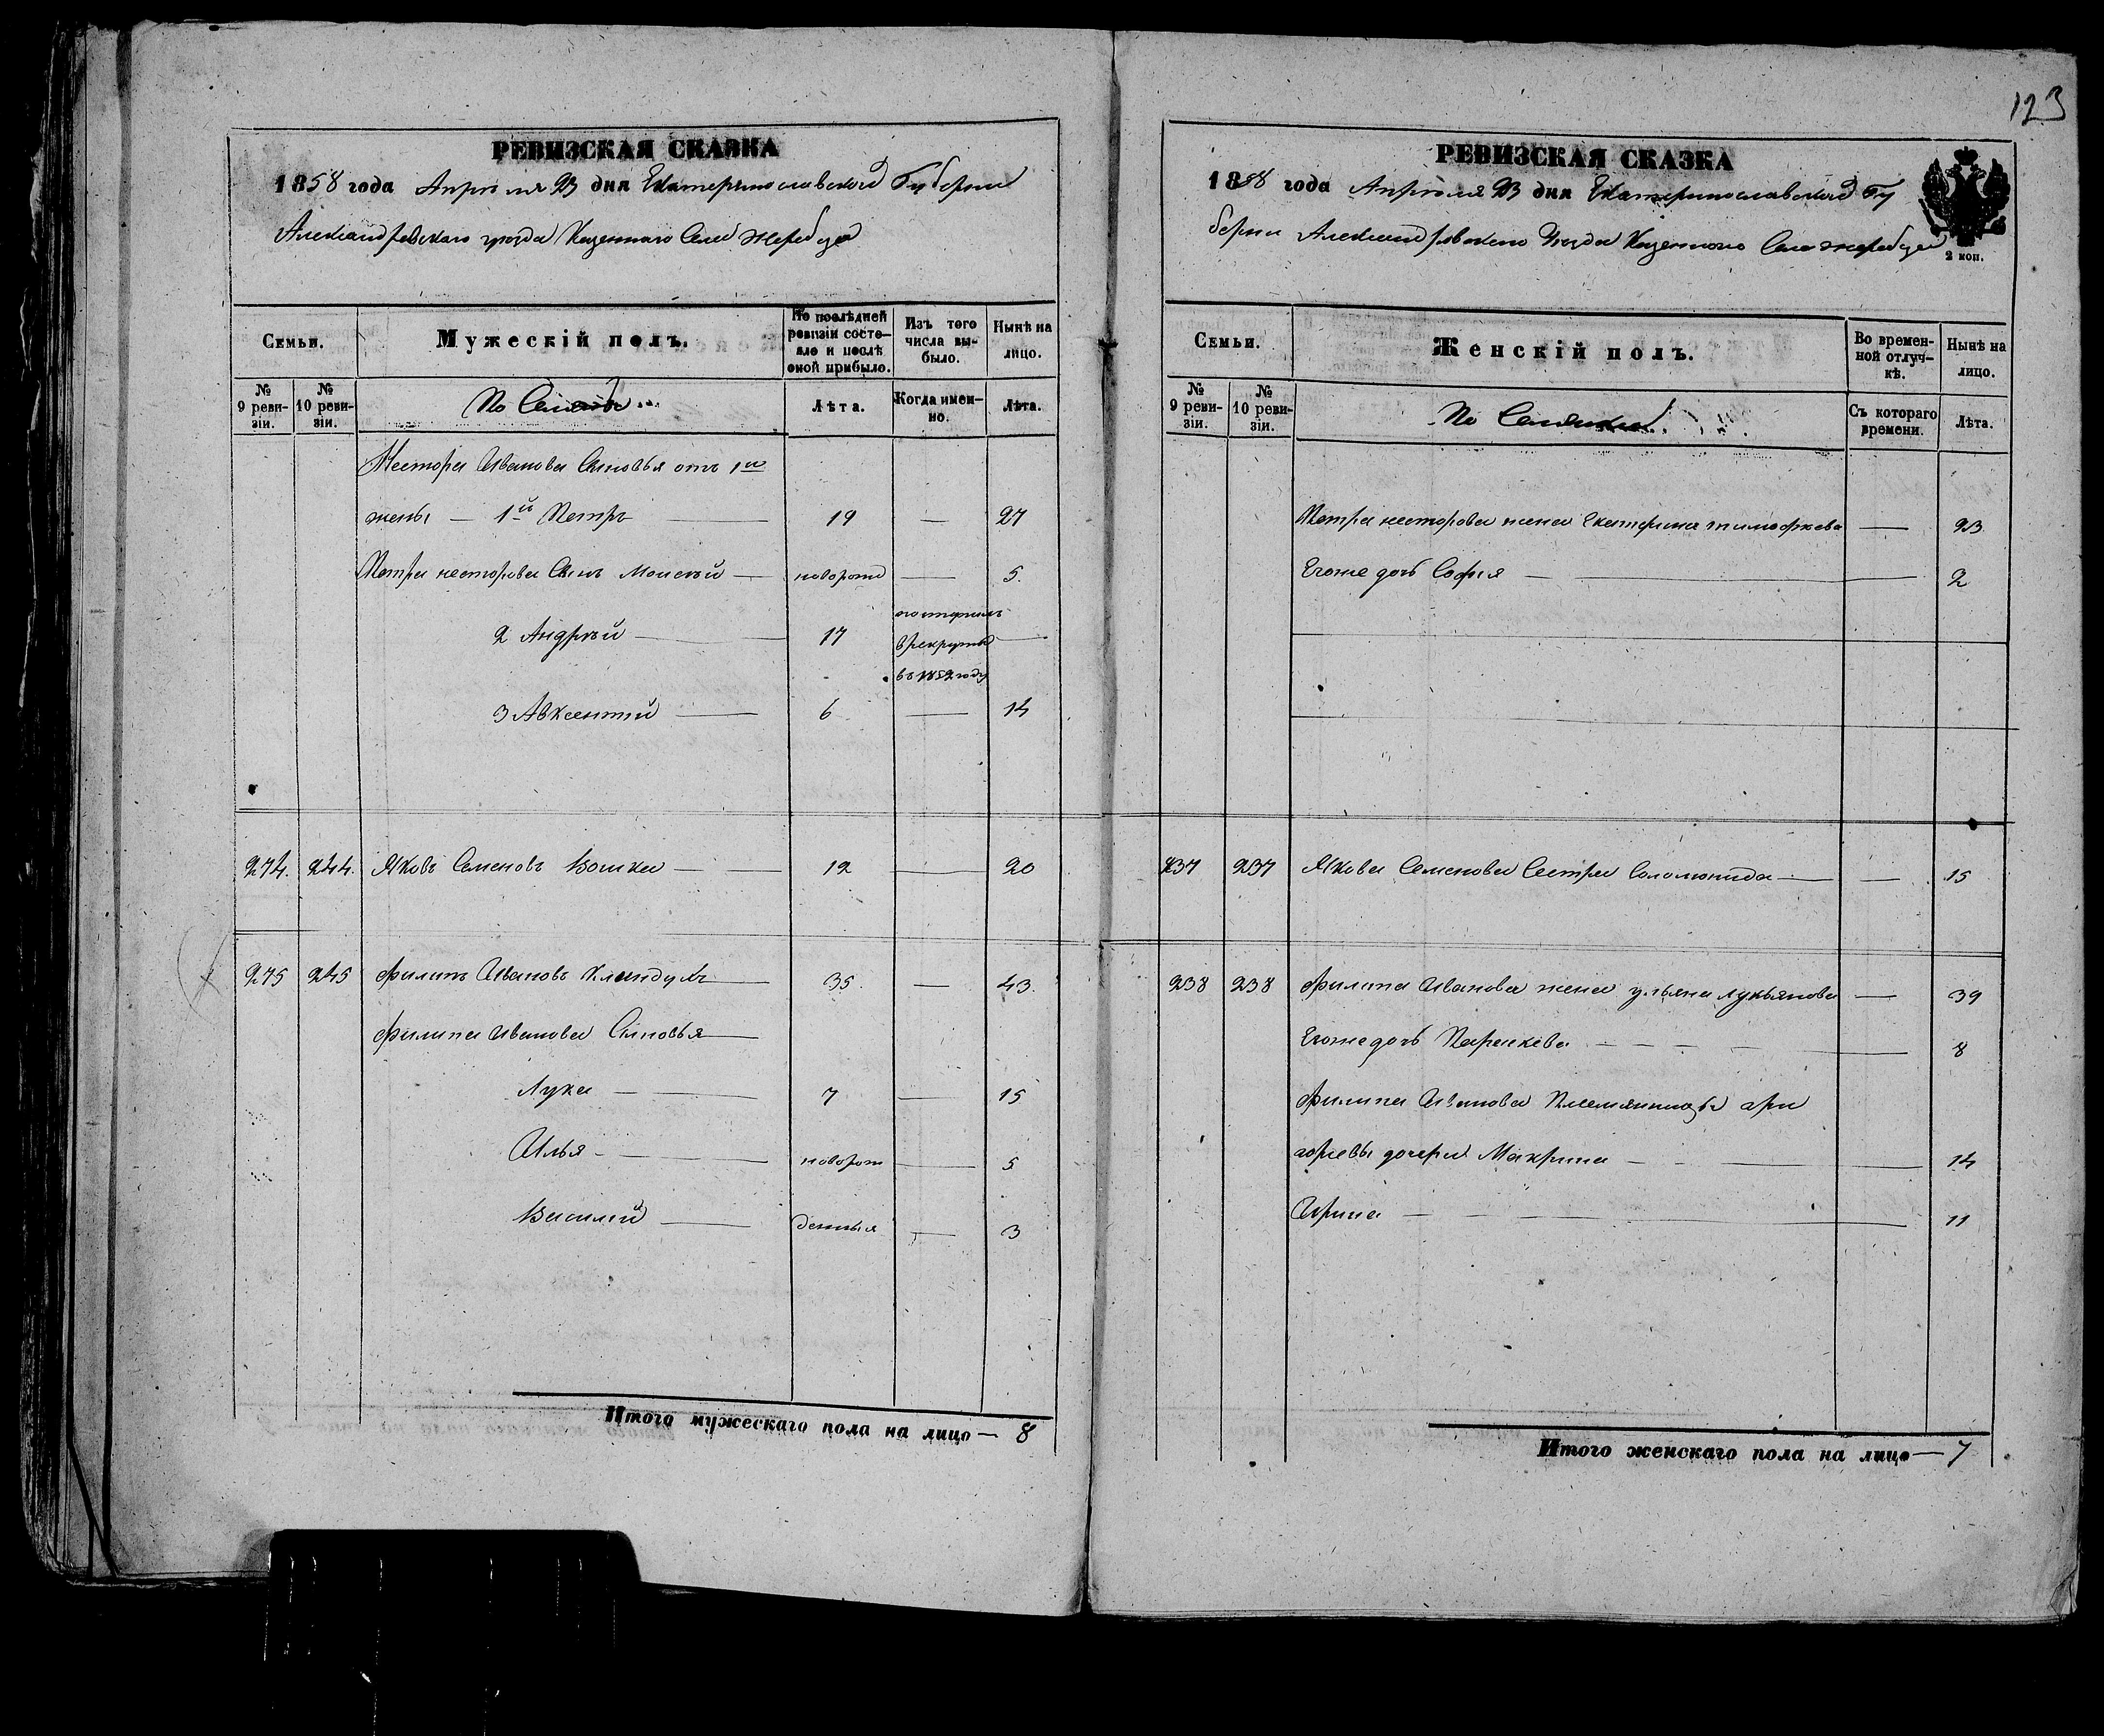 123
РЕВИЗСКАЯ СКАЗКА
1858 года Апреля 23 дня Екатеринославской Губернии
Александровскаго уезда Казеннаго Села Жеребца
Семьи.
Мужескій полъ.
По послѣдней ревизіи состояло и послѣ оной прибыло.
Изъ того числа выбыло.
Нынѣ на лицо.
№ 9 ревизіи.
№ 10 ревизіи.
Лѣта.
Когда именно.
Лѣта.
Нестора Иванова Сыновья отъ 1й
жены — 1й Петръ — 19 — 27
Петра несторова Сынъ Моисей — новорож — 5.
2 Андрей — 17 — в рекруты въ 1852 году —
3 Авксентий — 6 — 14
274. 244. Яковъ Семеновъ Вошка — 12 — 20
275 245 Филипъ Ивановъ — 35. — 43.
Филипа Иванова Сыновья —
Лука — 7 — 15
Илья — новорож — 5
Василий — — 3
Итого мужескаго пола на лицо — 8
РЕВИЗСКАЯ СКАЗКА
1858 года Апреля 23 дня Екатеринославской Гу
бернии Александровскаго Уезда Казеннаго Села жеребца
2 коп.
Семьи.
Женскій полъ.
Во временной отлучкѣ.
Нынѣ на лицо.
№ 9 ревизіи.
№ 10 ревизіи.
Съ котораго времени.
Лѣта.
Петра несторова жена Екатерина тимофеева — 23
Егоже дочь София — 2
237 237 Якова Семенова Сестра Соломонида — — 15
238 238 Филипа Иванова жена ульяна лукьянова — 39
Егоже дочь Параскева — 8
Филипа Иванова Племянника гри
горевы дочери Макрина — 14
Ирина — 11
Итого женскаго пола на лицо — 7